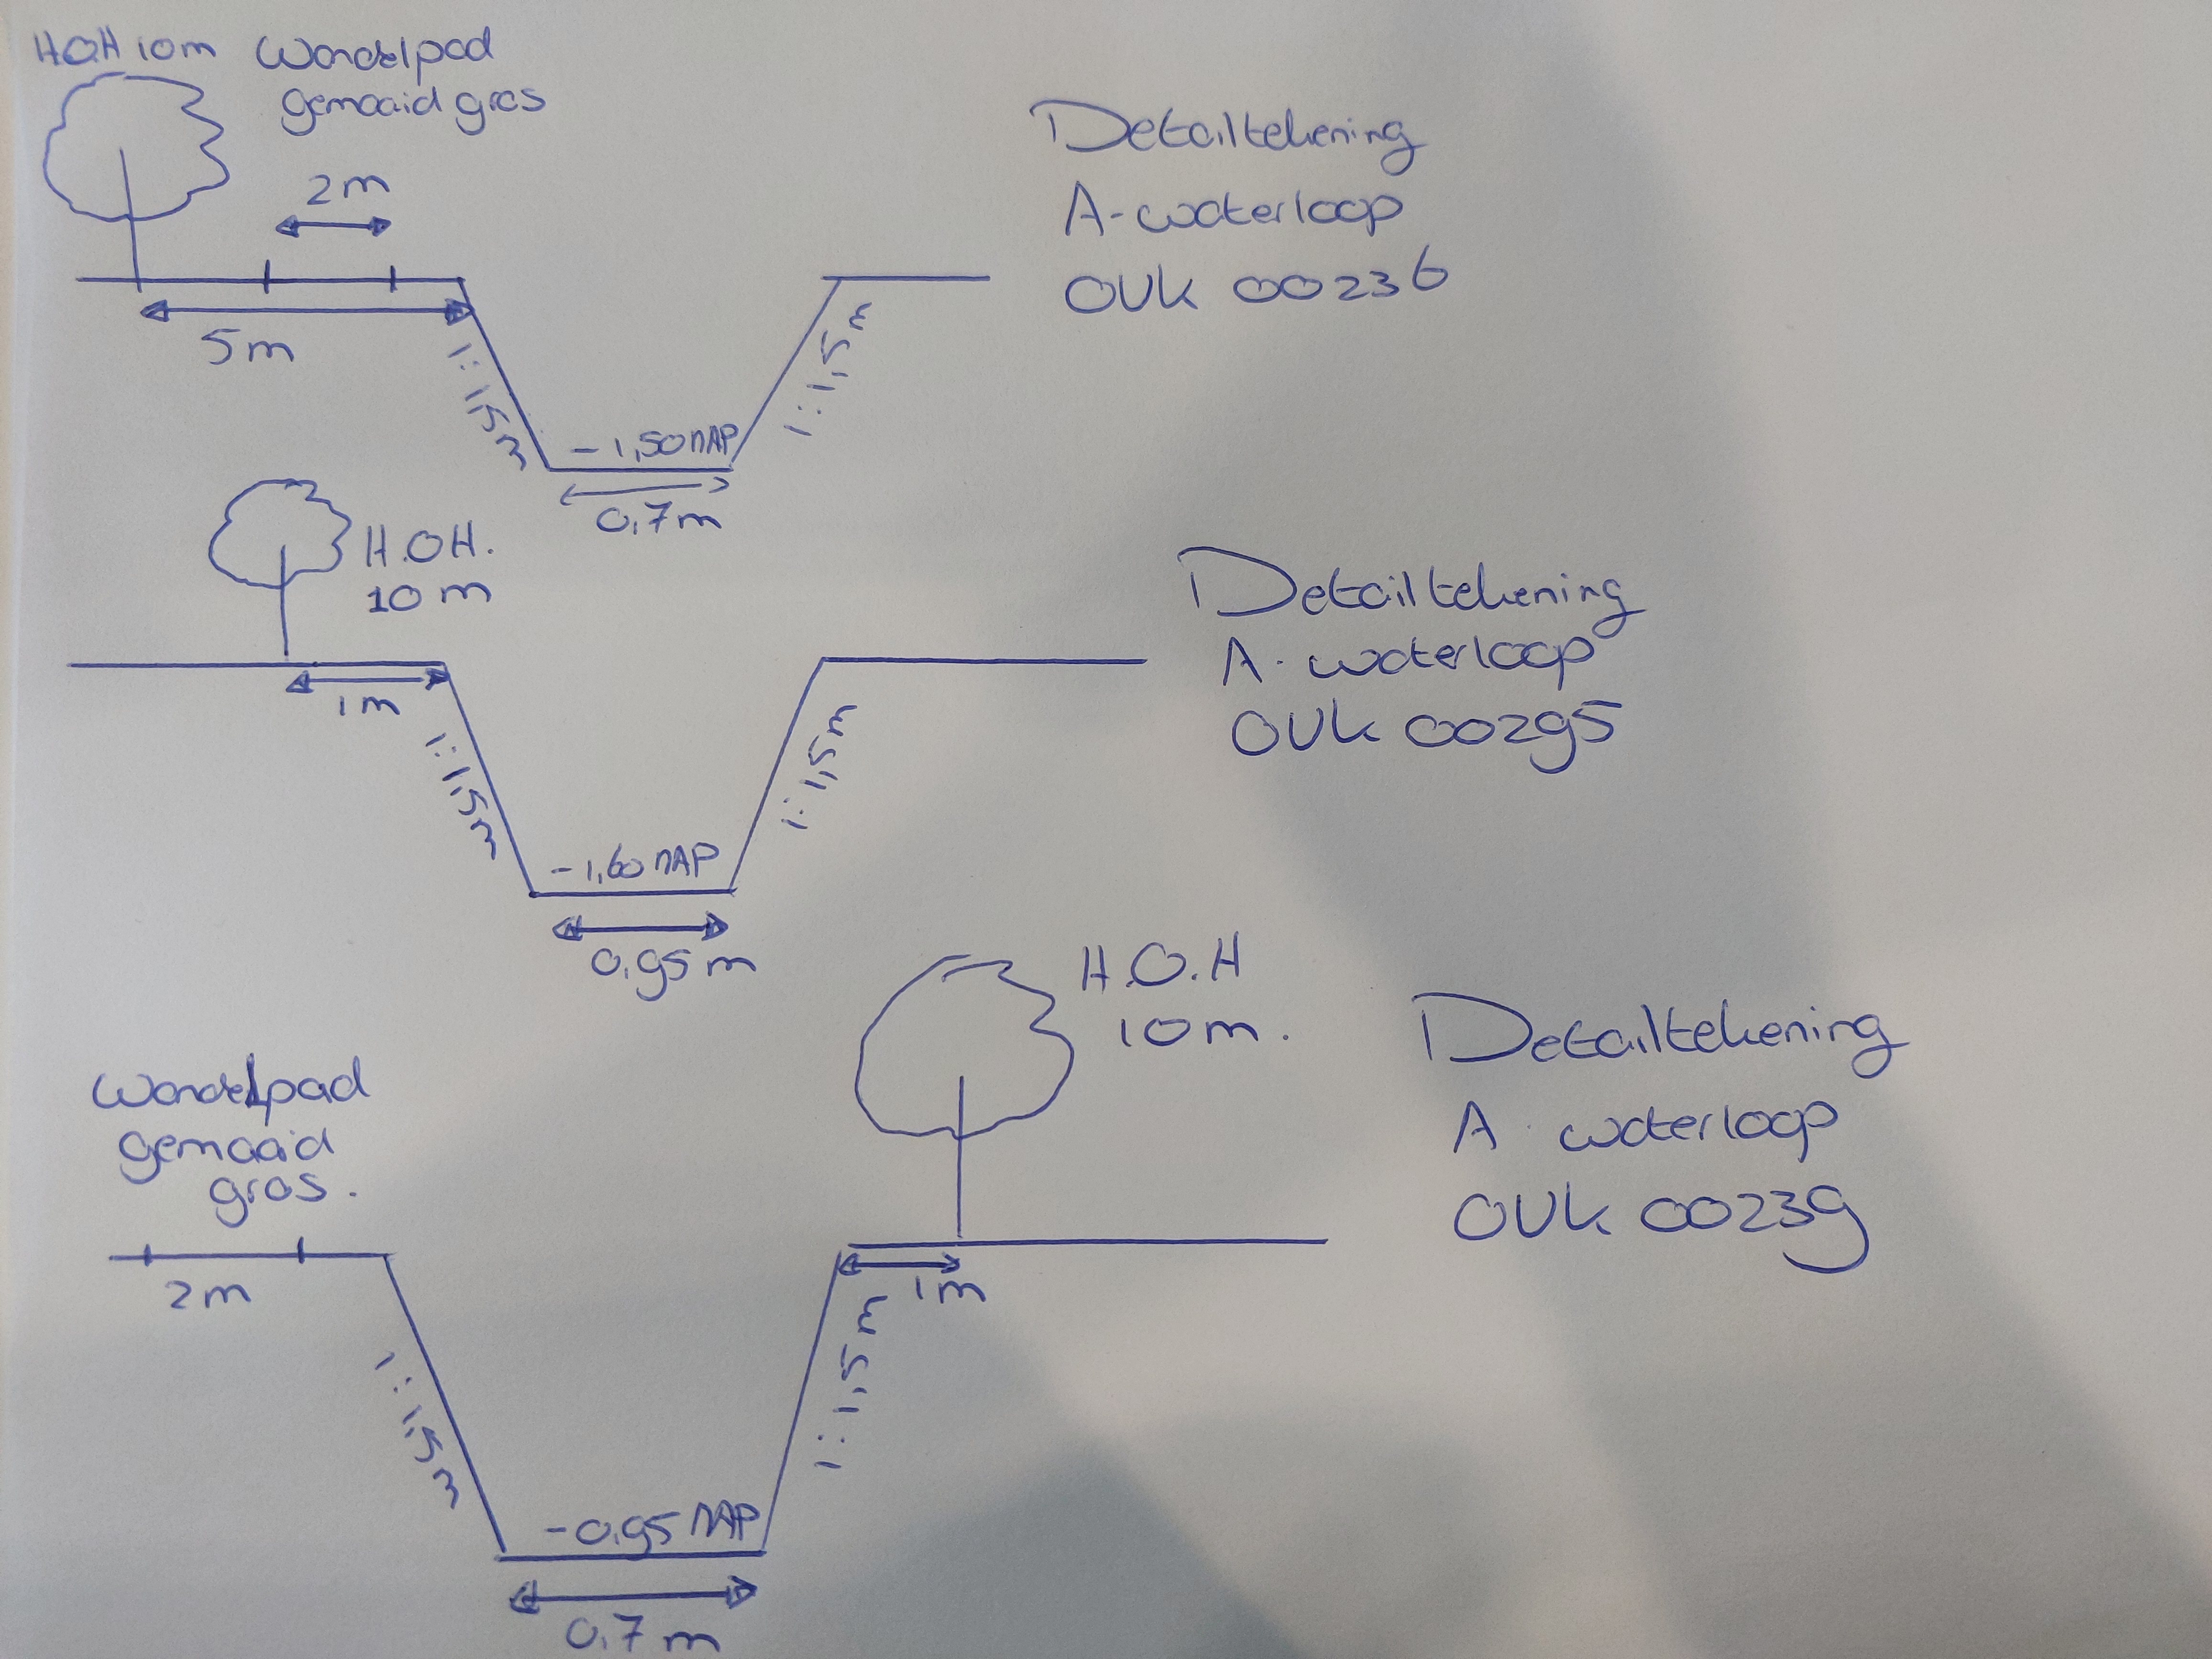 H.O.H 10m Wandelpad
gemaaid gras
2m
5m
1:1,5m
-1,50 NAP
1:1,5m
0,7m
Detailtekening
A-waterloop
OVK 00236
H.O.H.
10m
1m
1:1,5m
-1,60 NAP
1:1,5m
0,95m
Detailtekening
A-waterloop
OVK 00295
Wandelpad
gemaaid
gras.
2m
1:1,5m
-0,95 NAP
1:1,5m
0,7m
H.O.H
10m.
1m
Detailtekening
A-waterloop
OVK 00239